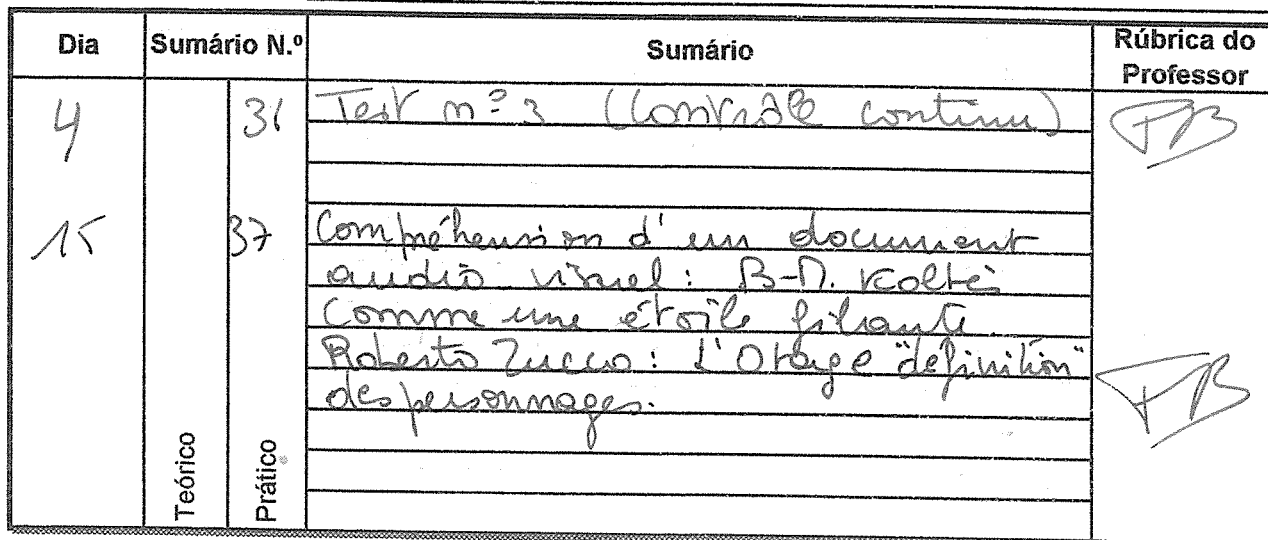 Dia Sumário N.º Sumário Rúbrica do Professor
4 36 Test nº 3 (Contrôle continu) FB
15 37 Compréhension d'un document
audio visuel : B-M. Koltès
Comme une étoile filante
Roberto Zucco : L'Otage "définition"
des personnages. FB
Teórico Prático